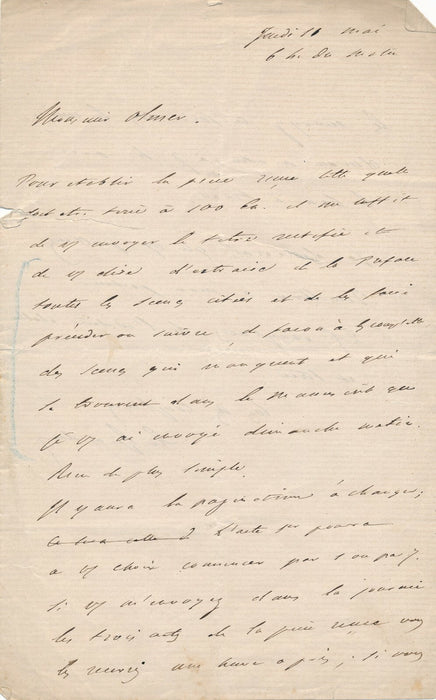 Jeudi 11 mai
6 h. du matin
Monsieur
Pour établir la pièce telle quelle
doit être à 100 il me suffit
de vs envoyer le titre rectifié et
de vs dire d'extraire de la Préface
toutes les scènes citées et de les faire
précéder ou suivre de façon à
des scènes qui manquent et qui
se trouvent dans le manuscrit que
je vs ai envoyé dimanche matin.
Rien de plus simple.
Il y aura la pagination à changer,
L'acte 1er pourra
à vs choix commencer par 1 ou par 7.
Si vs m'envoyez dans la journée
les trois actes de la pièce vous
les aurez une heure après ; si vous